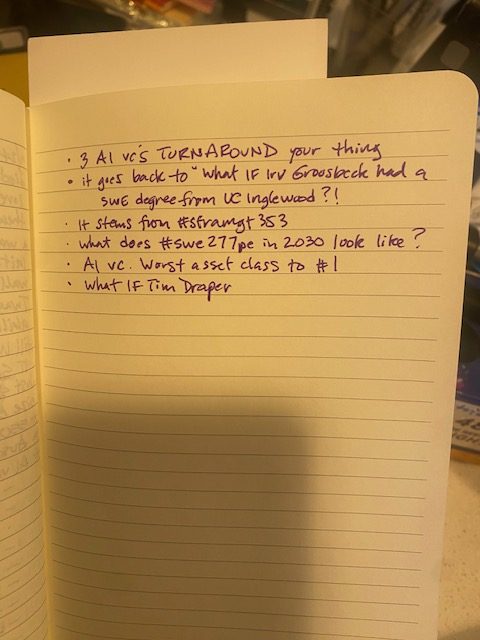 · 3 AI VC's TURNAROUND your thing
· it goes back to "what IF Irv Groosbeck had a
SWE degree from UC Inglewood?!
· It stems from #sframgt353
· what does #swe277pe in 2030 look like?
· AI VC. Worst asset class to #1
· What IF Tim Draper